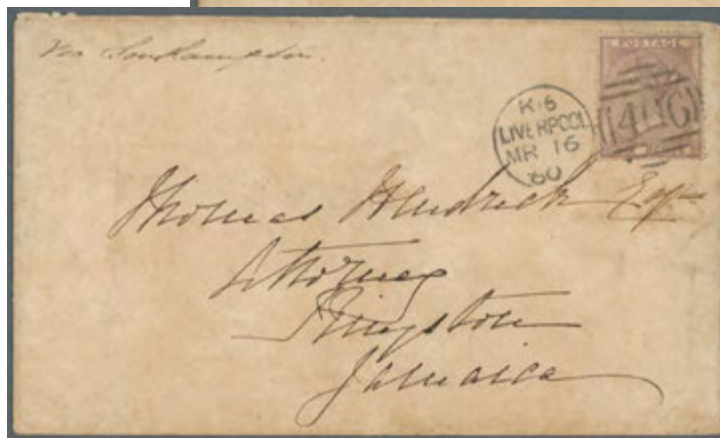 Via Southampton.
POSTAGE
K·6
LIVERPOOL
MR 16
60
466
Thomas Hendrick Esq
Attorney
Kingston
Jamaica